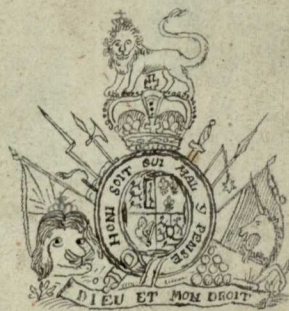 HONI SOIT QUI MAL Y PENSE
DIEU ET MON DROIT